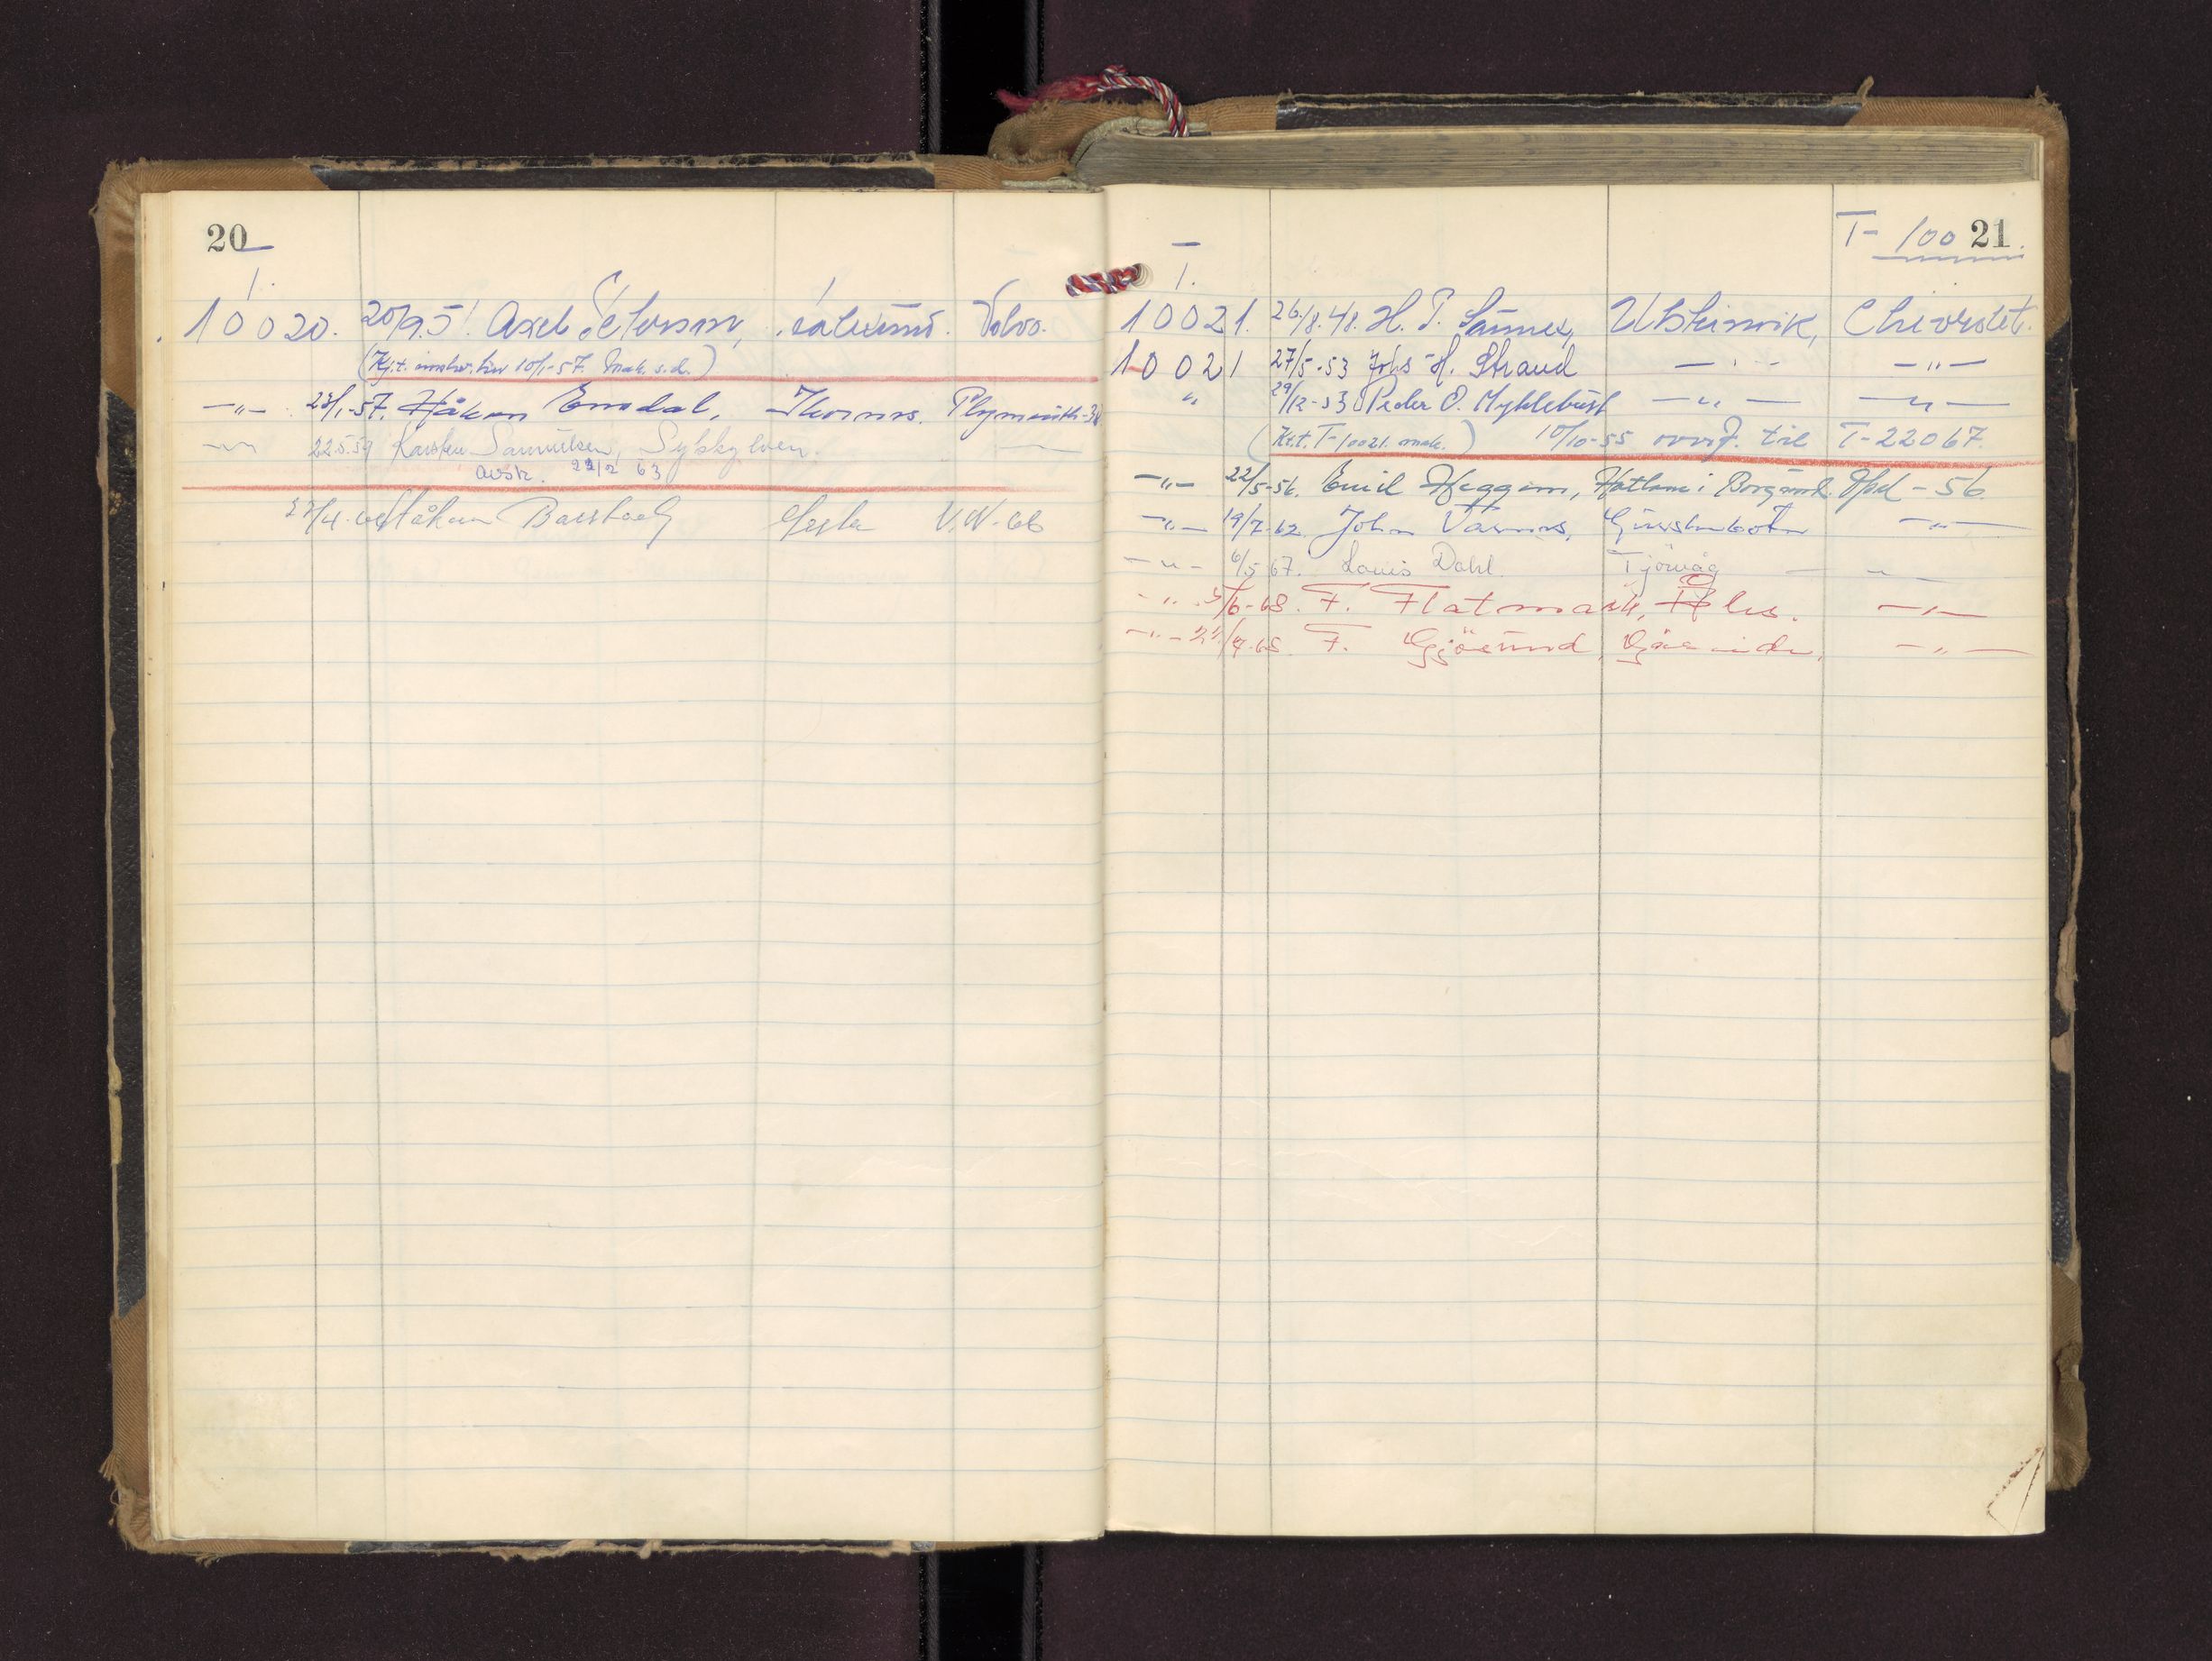 20
1.
10020. 20/9.51 Axel Peterson, Volvo.
(Kj.t. innlev. her 10/1-57. Mak. s.d.)
-"- 23/1-57. Håkon Emdal, Ikornes. Plymouth-38
-"- 22.5.59 Karsten Samuelsen, Sykkylven.
avsk. 22/2 63
Håkon Vesta V.W-66
T-100 21.
1.
10021. 26/8.48. H. P. Sannes, Ulsteinvik, Chevrolet.
10021 27/5-53 Johs H. Strand -"- -"-
" 29/12-53 Peder O. Myklebust -"- -"-
(Kj.t. T-10021. mak.) 10/10-55 overf. til T-22067.
-"- 22/5-56. Emil Heggem, Hatlane i Borgund. Opel-56
-"- 19/7-62. John Vasnes, Gurskebotn -"-
-"- 6/5 67. Louis Dahl. Tjörvåg -"-
-"- 5/6-68. F. Flatmark, -"-
-"- F. Gjösund, -"-